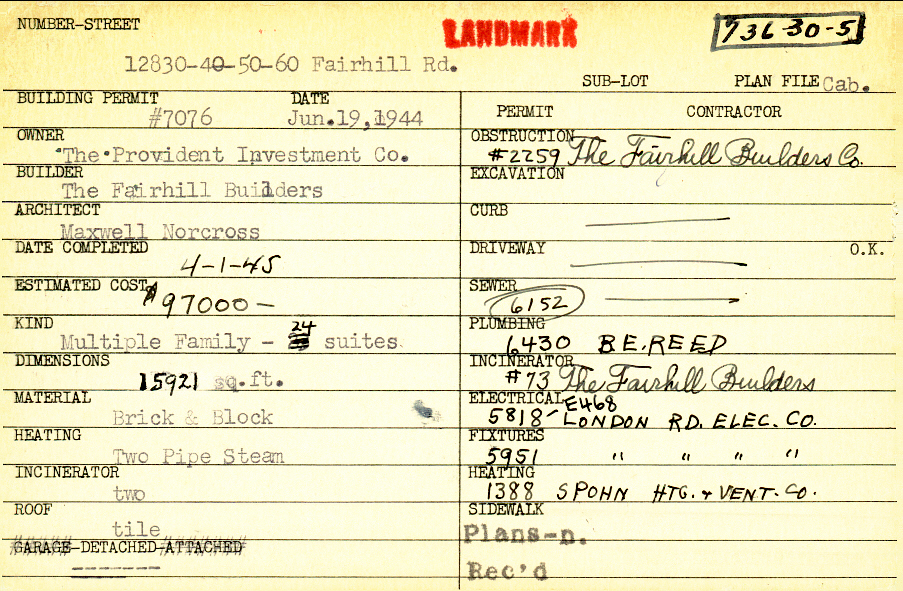 NUMBER-STREET
LANDMARK
736-30-5
12830-40-50-60 Fairhill Rd.
SUB-LOT PLAN FILE Cab.
BUILDING PERMIT DATE
#7076 Jun.19,1944
PERMIT CONTRACTOR
OWNER
The Provident Investment Co.
OBSTRUCTION
#2259 The Fairhill Builders Co.
BUILDER
The Fairhill Builders
EXCAVATION
ARCHITECT
Maxwell Norcross
CURB
DATE COMPLETED
4-1-45
DRIVEWAY O.K.
ESTIMATED COST
$97000-
SEWER
6152
KIND
Multiple Family - 24 suites
PLUMBING
6430 B.E.REED
DIMENSIONS
15921 sq.ft.
INCINERATOR
#73 The Fairhill Builders
MATERIAL
Brick & Block
ELECTRICAL E468
5818- LONDON RD. ELEC. CO.
HEATING
Two Pipe Steam
FIXTURES
5951 " " " "
INCINERATOR
two
HEATING
1388 SPOHN HTG. + VENT. CO.
ROOF
tile
SIDEWALK
Plans-n.
GARAGE-DETACHED-ATTACHED
-------
Rec'd